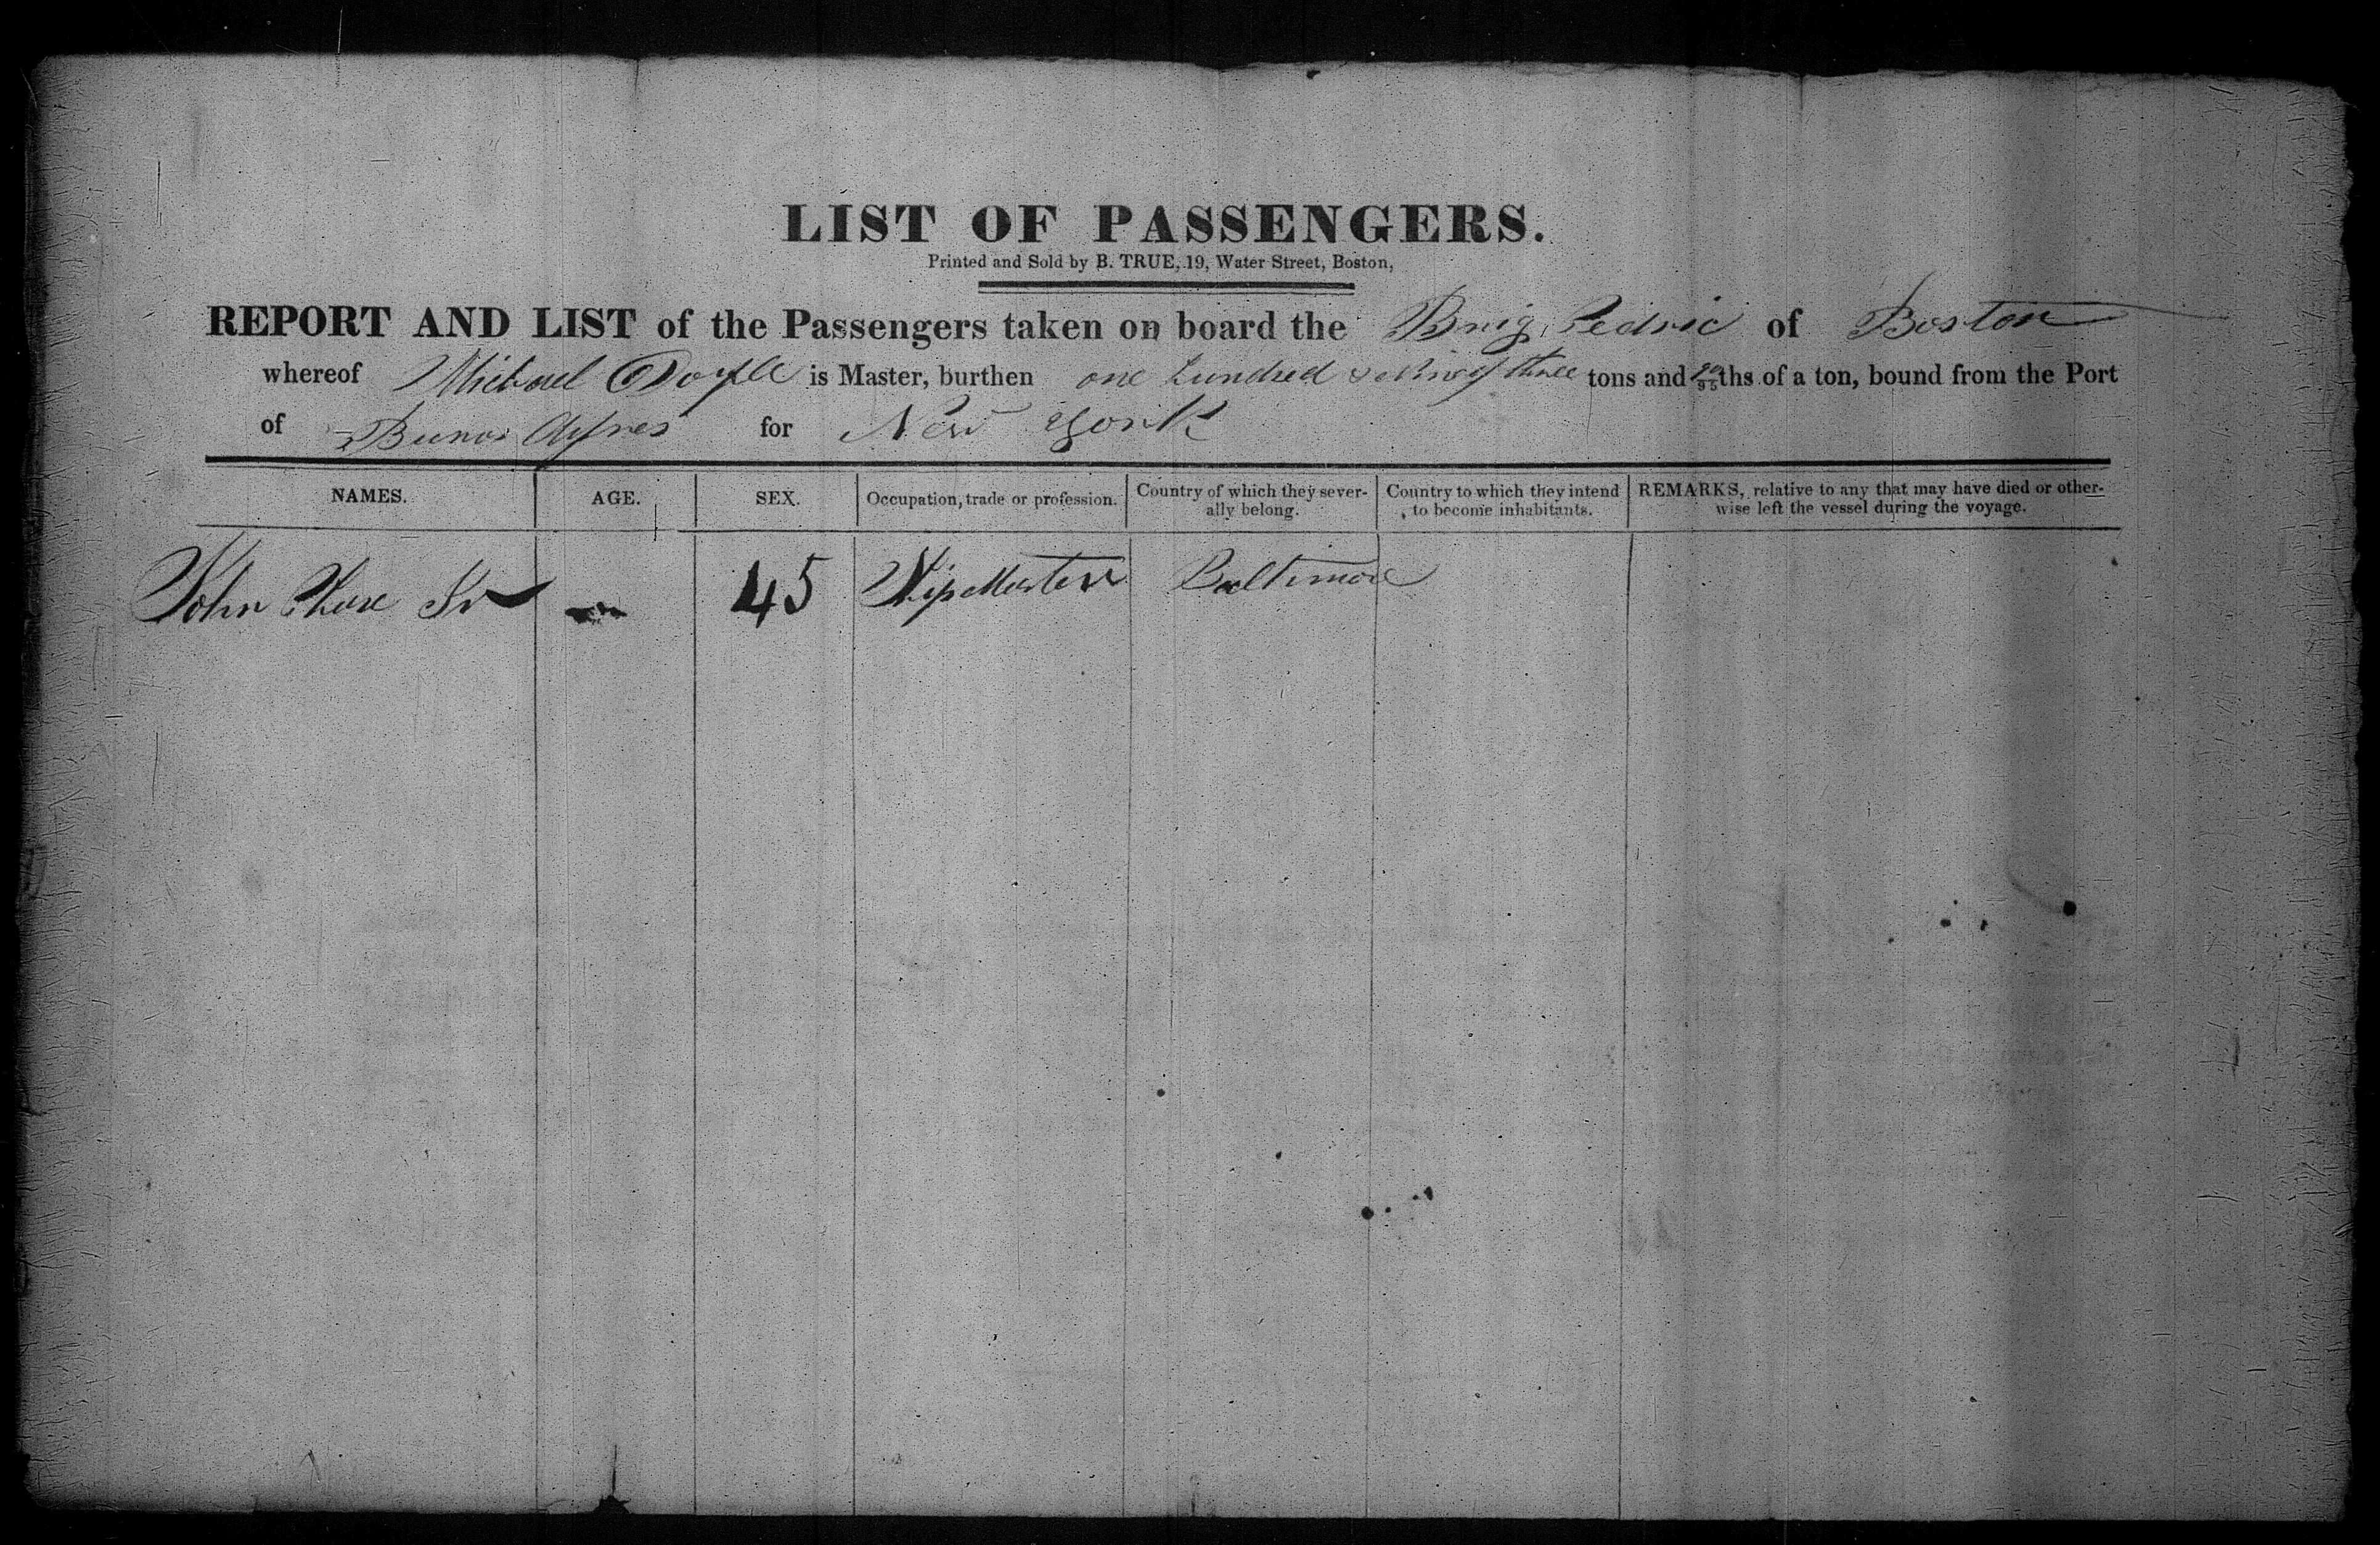 LIST OF PASSENGERS.
Printed and Sold by B. TRUE, 19, Water Street, Boston,
REPORT AND LIST of the Passengers taken on board the Brig Cedric of Boston
whereof Michael Doyle is Master, burthen one hundred & three tons and /95ths of a ton, bound from the Port
of Buenos Ayres for New York
NAMES. AGE. SEX. Occupation, trade or profession. Country of which they sever- Country to which they intend REMARKS, relative to any that may have died or other-
ally belong. to become inhabitants. wise left the vessel during the voyage.
John 45 Baltimore